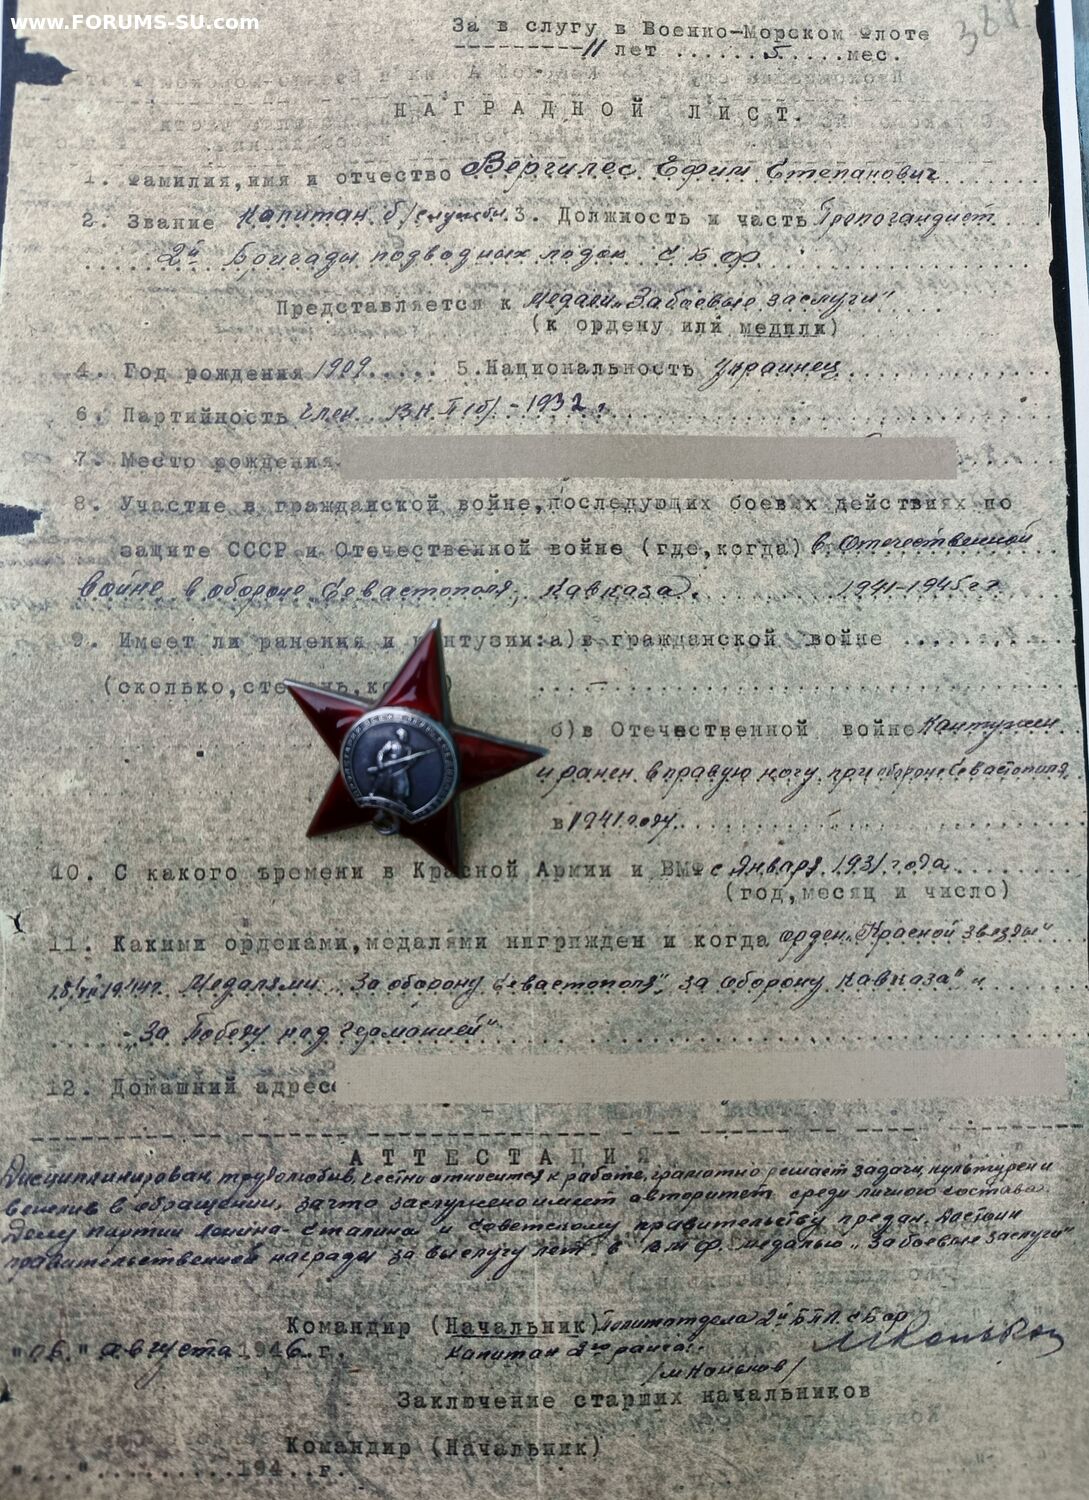 www.FORUMS-SU.com
387.
За в слугу в Военно-Морском Флоте
11 лет ....... 5 .....мес.
НАГРАДНОЙ ЛИСТ.
1. Фамилия, имя и отчество Вергилес Ефим Степанович
2. Звание Капитан б/службы 3. Должность и часть Пропогандист
2й Бригады подводных лодок СБФ
Представляется к медали „За боевые заслуги"
(к ордену или медали)
4. Год рождения 1909..... 5. Национальность украинец
6. Партийность член ВКП(б) - 1932 г.
7. Место рождения
8. Участие в гражданской войне, последующих боевых действиях по
защите СССР и Отечественной войне (где, когда) в Отечественной
войне в обороне Севастополя, Кавказа. 1941-1945 гг
9. Имеет ли ранения и контузии: а) в гражданской войне .......
(сколько, —
б) в Отечественной войне Контужен
и ранен в правую ногу при обороне Севастополя
в 1941 году.
10. С какого времени в Красной Армии и ВМФ с Января 1931 года
(год, месяц и число)
11. Какими орденами, медалями награжден и когда орден „Красной звезды"
1944г. Медалями „За оборону Севастополя", „За оборону Кавказа" и
„За Победу над Германией"
12. Домашний адрес
АТТЕСТАЦИЯ
Дисциплинирован, трудолюбив, честно относится к работе, грамотно решает задачи, культурен и
вежлив в обращении, за что заслуженно имеет авторитет среди личного состава.
Делу партии Ленина-Сталина и Советскому правительству предан. Достоин
правительственной награды за выслугу лет в ВМФ. медалью „За боевые заслуги"
Командир (Начальник) Политотдела 2й БПЛ СБФ
"06." августа 1946 г. Капитан 2го ранга:
Заключение старших начальников
Командир (Начальник)
"...."..........194..г.